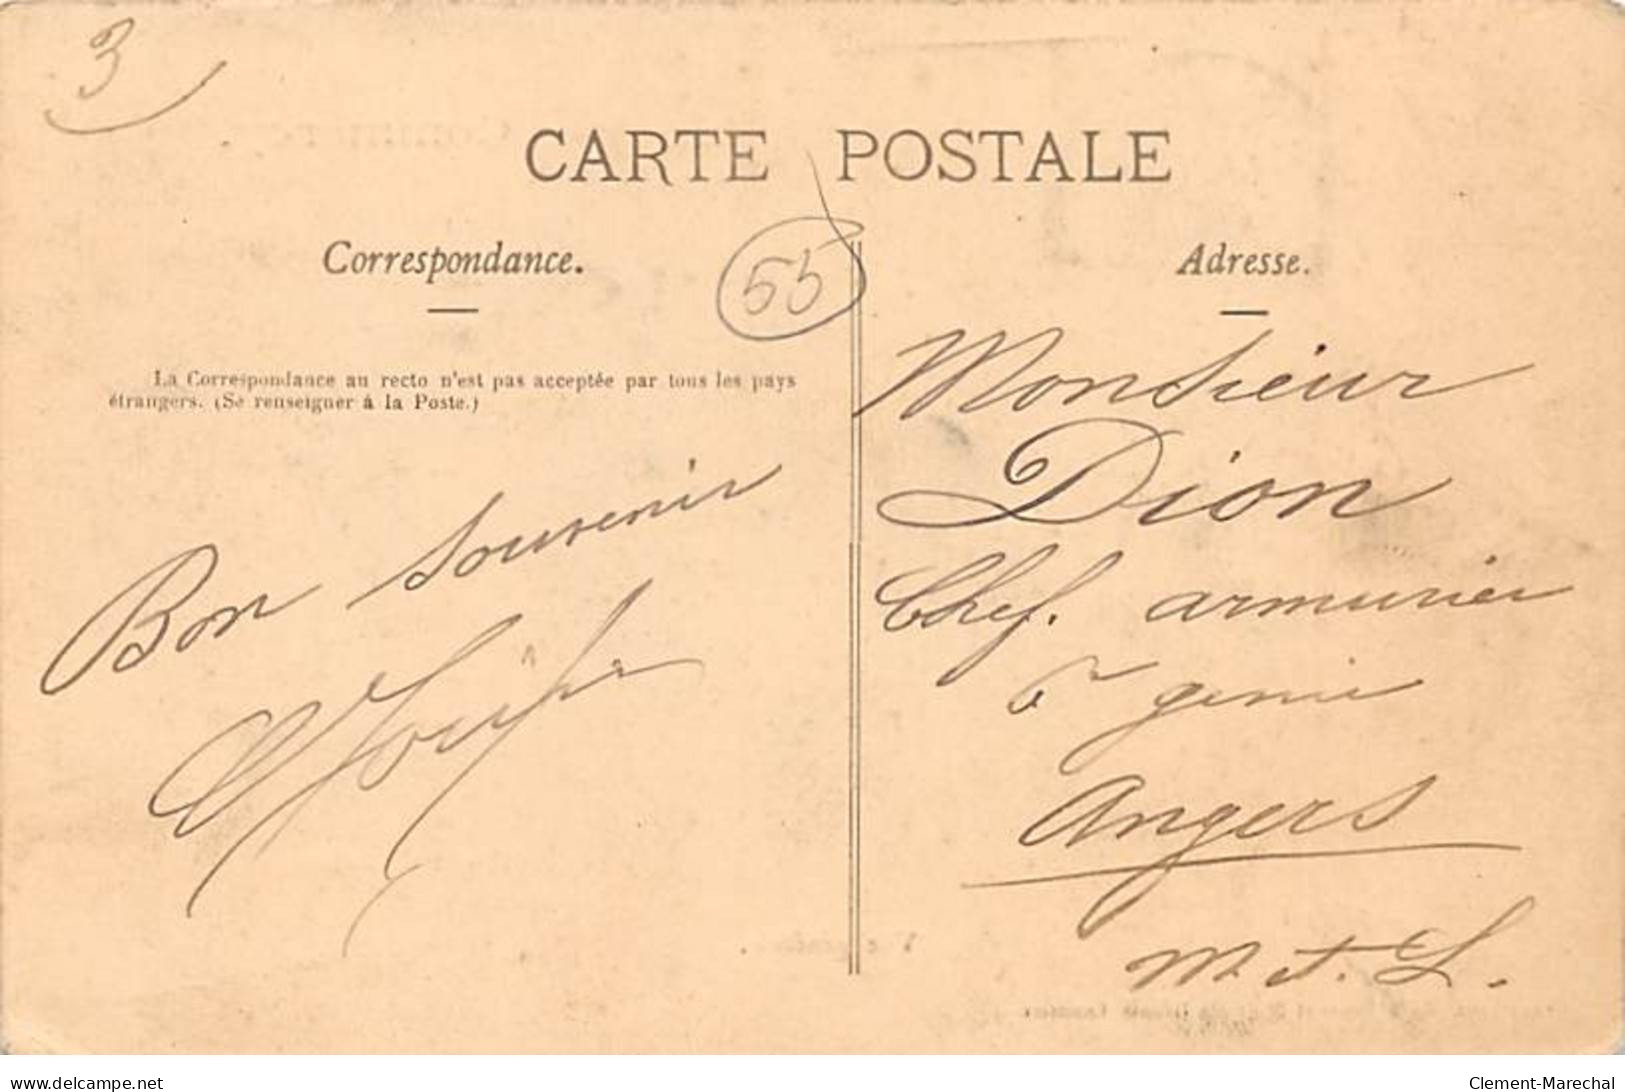 3
CARTE POSTALE
Correspondance.
Adresse.
55
La Correspondance au recto n'est pas acceptée par tous les pays
étrangers. (Se renseigner à la Poste.)
Bon souvenir
Monsieur
Dion
Chef. armurier
6e genie
Angers
M. et. L.
www.delcampe.net
Clement-Marechal